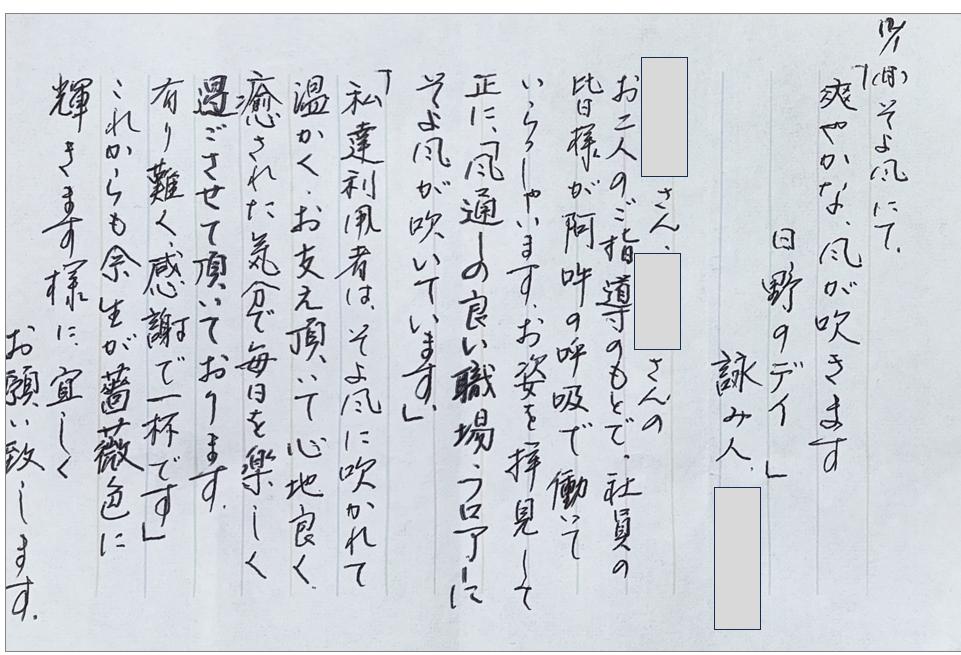 12/1(月)そよ風にて、
「爽やかな、風が吹きます
日野のデイ」
詠み人、
さん、さんの
お二人のご指導のもとで、社員の
皆様が阿吽の呼吸で働いて
いらっしゃいます、お姿を拝見して
正に、「風通しの良い職場、フロアに
そよ風が吹いています。」
「私達利用者は、そよ風に吹かれて
温かく、お支え頂いて心地良く
癒された気分で毎日を楽しく
過ごさせて頂いております。
有り難く、感謝で一杯です」
これからも余生が薔薇色に
輝きます様に宜しく
お願い致します。